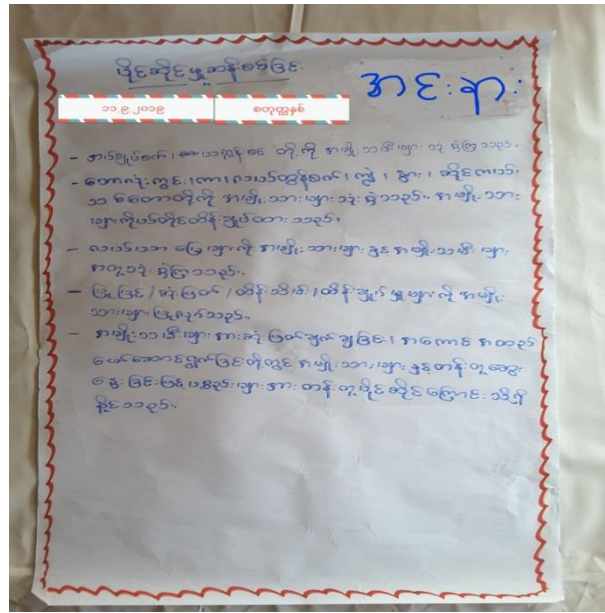 ပိုင်ဆိုင်မှုဆန်းစစ်ခြင်း
အင်းနား
၁၁.၉.၂၀၁၉ စတုတ္ထနှစ်
- အပ်ချုပ်စက်၊ တို့ကို အမျိုးသမီးများ သုံးစွဲကြသည်။
- ဘောလုံးကွင်း၊ ကား၊ လယ်ထွန်စက်၊ ကျွဲ၊ နွား၊ ဆိုင်ကယ်၊
သစ်တောတို့ကို အမျိုးသားများ သုံးစွဲသည်။ အမျိုးသား
များကိုယ်တိုင်ထိန်းချုပ်ထားသည်။
- လယ်ယာမြေများကို အမျိုးသားများနှင့် အမျိုးသမီးများ
အတူသုံးစွဲကြသည်။
- ပြုပြင်/ဆုံးဖြတ်/ထိန်းသိမ်း/ထိန်းချုပ်မှုများကို အမျိုး
သားများပြုလုပ်သည်။
- အမျိုးသမီးများအားဆုံးဖြတ်ချက်ချခြင်း၊ အကောင်အထည်
ဖော်ဆောင်ရွက်ခြင်းတို့တွင် အမျိုးသားများနှင့်တန်းတူဆွေး
နွေးခြင်းဖြင့် ပစ္စည်းများအား တန်းတူပိုင်ဆိုင်ကြောင်းသိရှိ
နိုင်သည်။